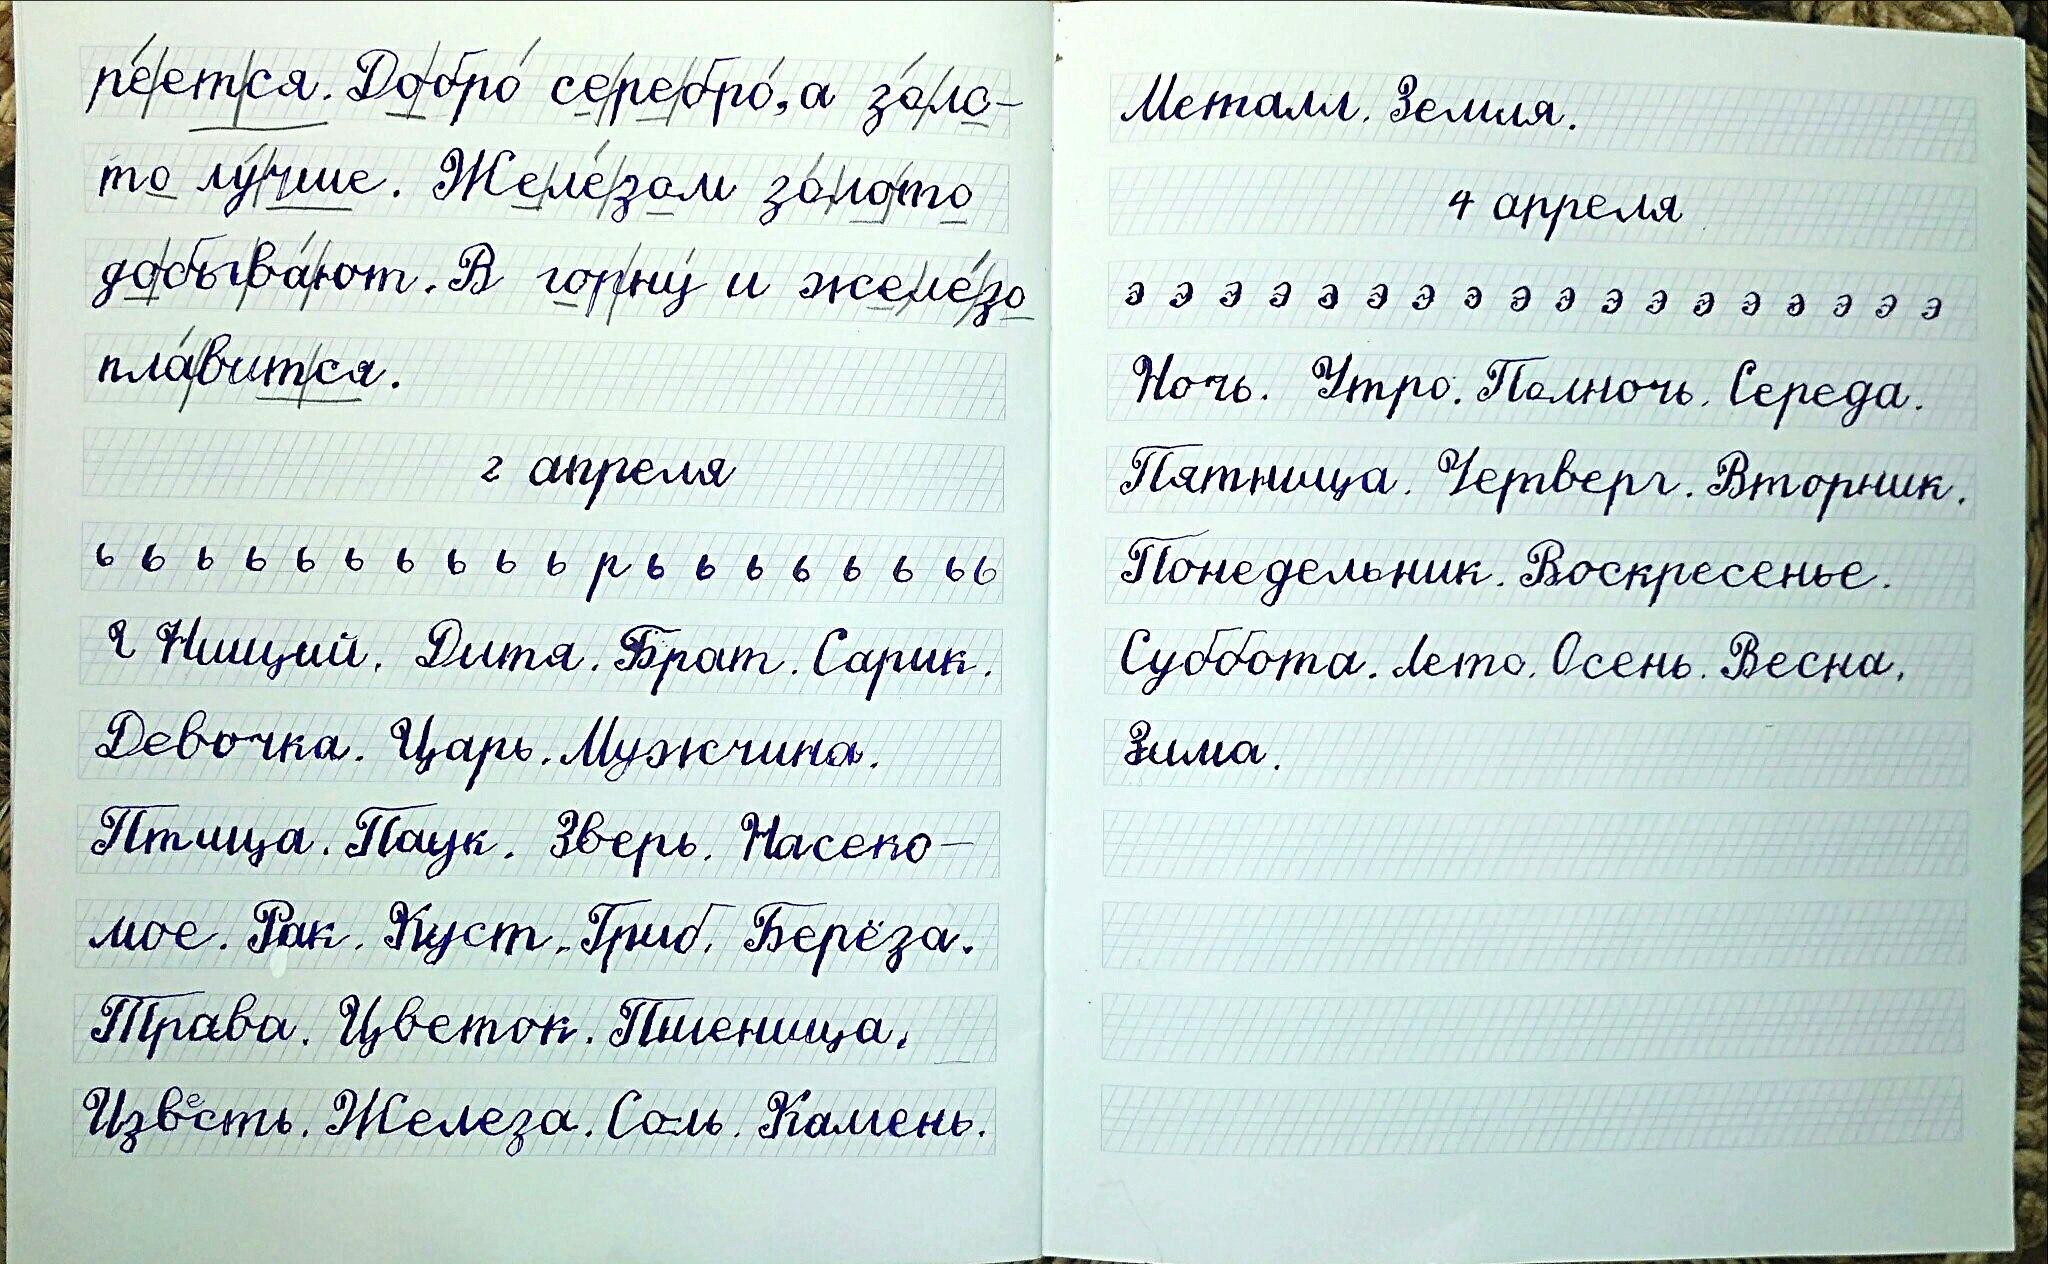 ре́ется. Добро́ серебро́, а зо́ло-
то лу́чше. Желе́зом зо́лото
добыва́ют. В горну́ и желе́зо
пла́вится.
2 апреля
ь ь ь ь ь ь ь ь ь ь р ь ь ь ь ь ь ь ь
Ч Нищий. Дитя. Брат. Сарик.
Девочка. Царь. Мужчина.
Птица. Паук. Зверь. Насеко-
мое. Рак. Куст. Гриб. Берёза.
Трава. Цветок. Пшеница.
Известь. Железа. Соль. Камень.
Металл. Земля.
4 апреля
э э э э э э э э э э э э э э э э э э
Ночь. Утро. Полночь. Середа.
Пятница. Четверг. Вторник.
Понедельник. Воскресенье.
Суббота. Лето. Осень. Весна.
Зима.